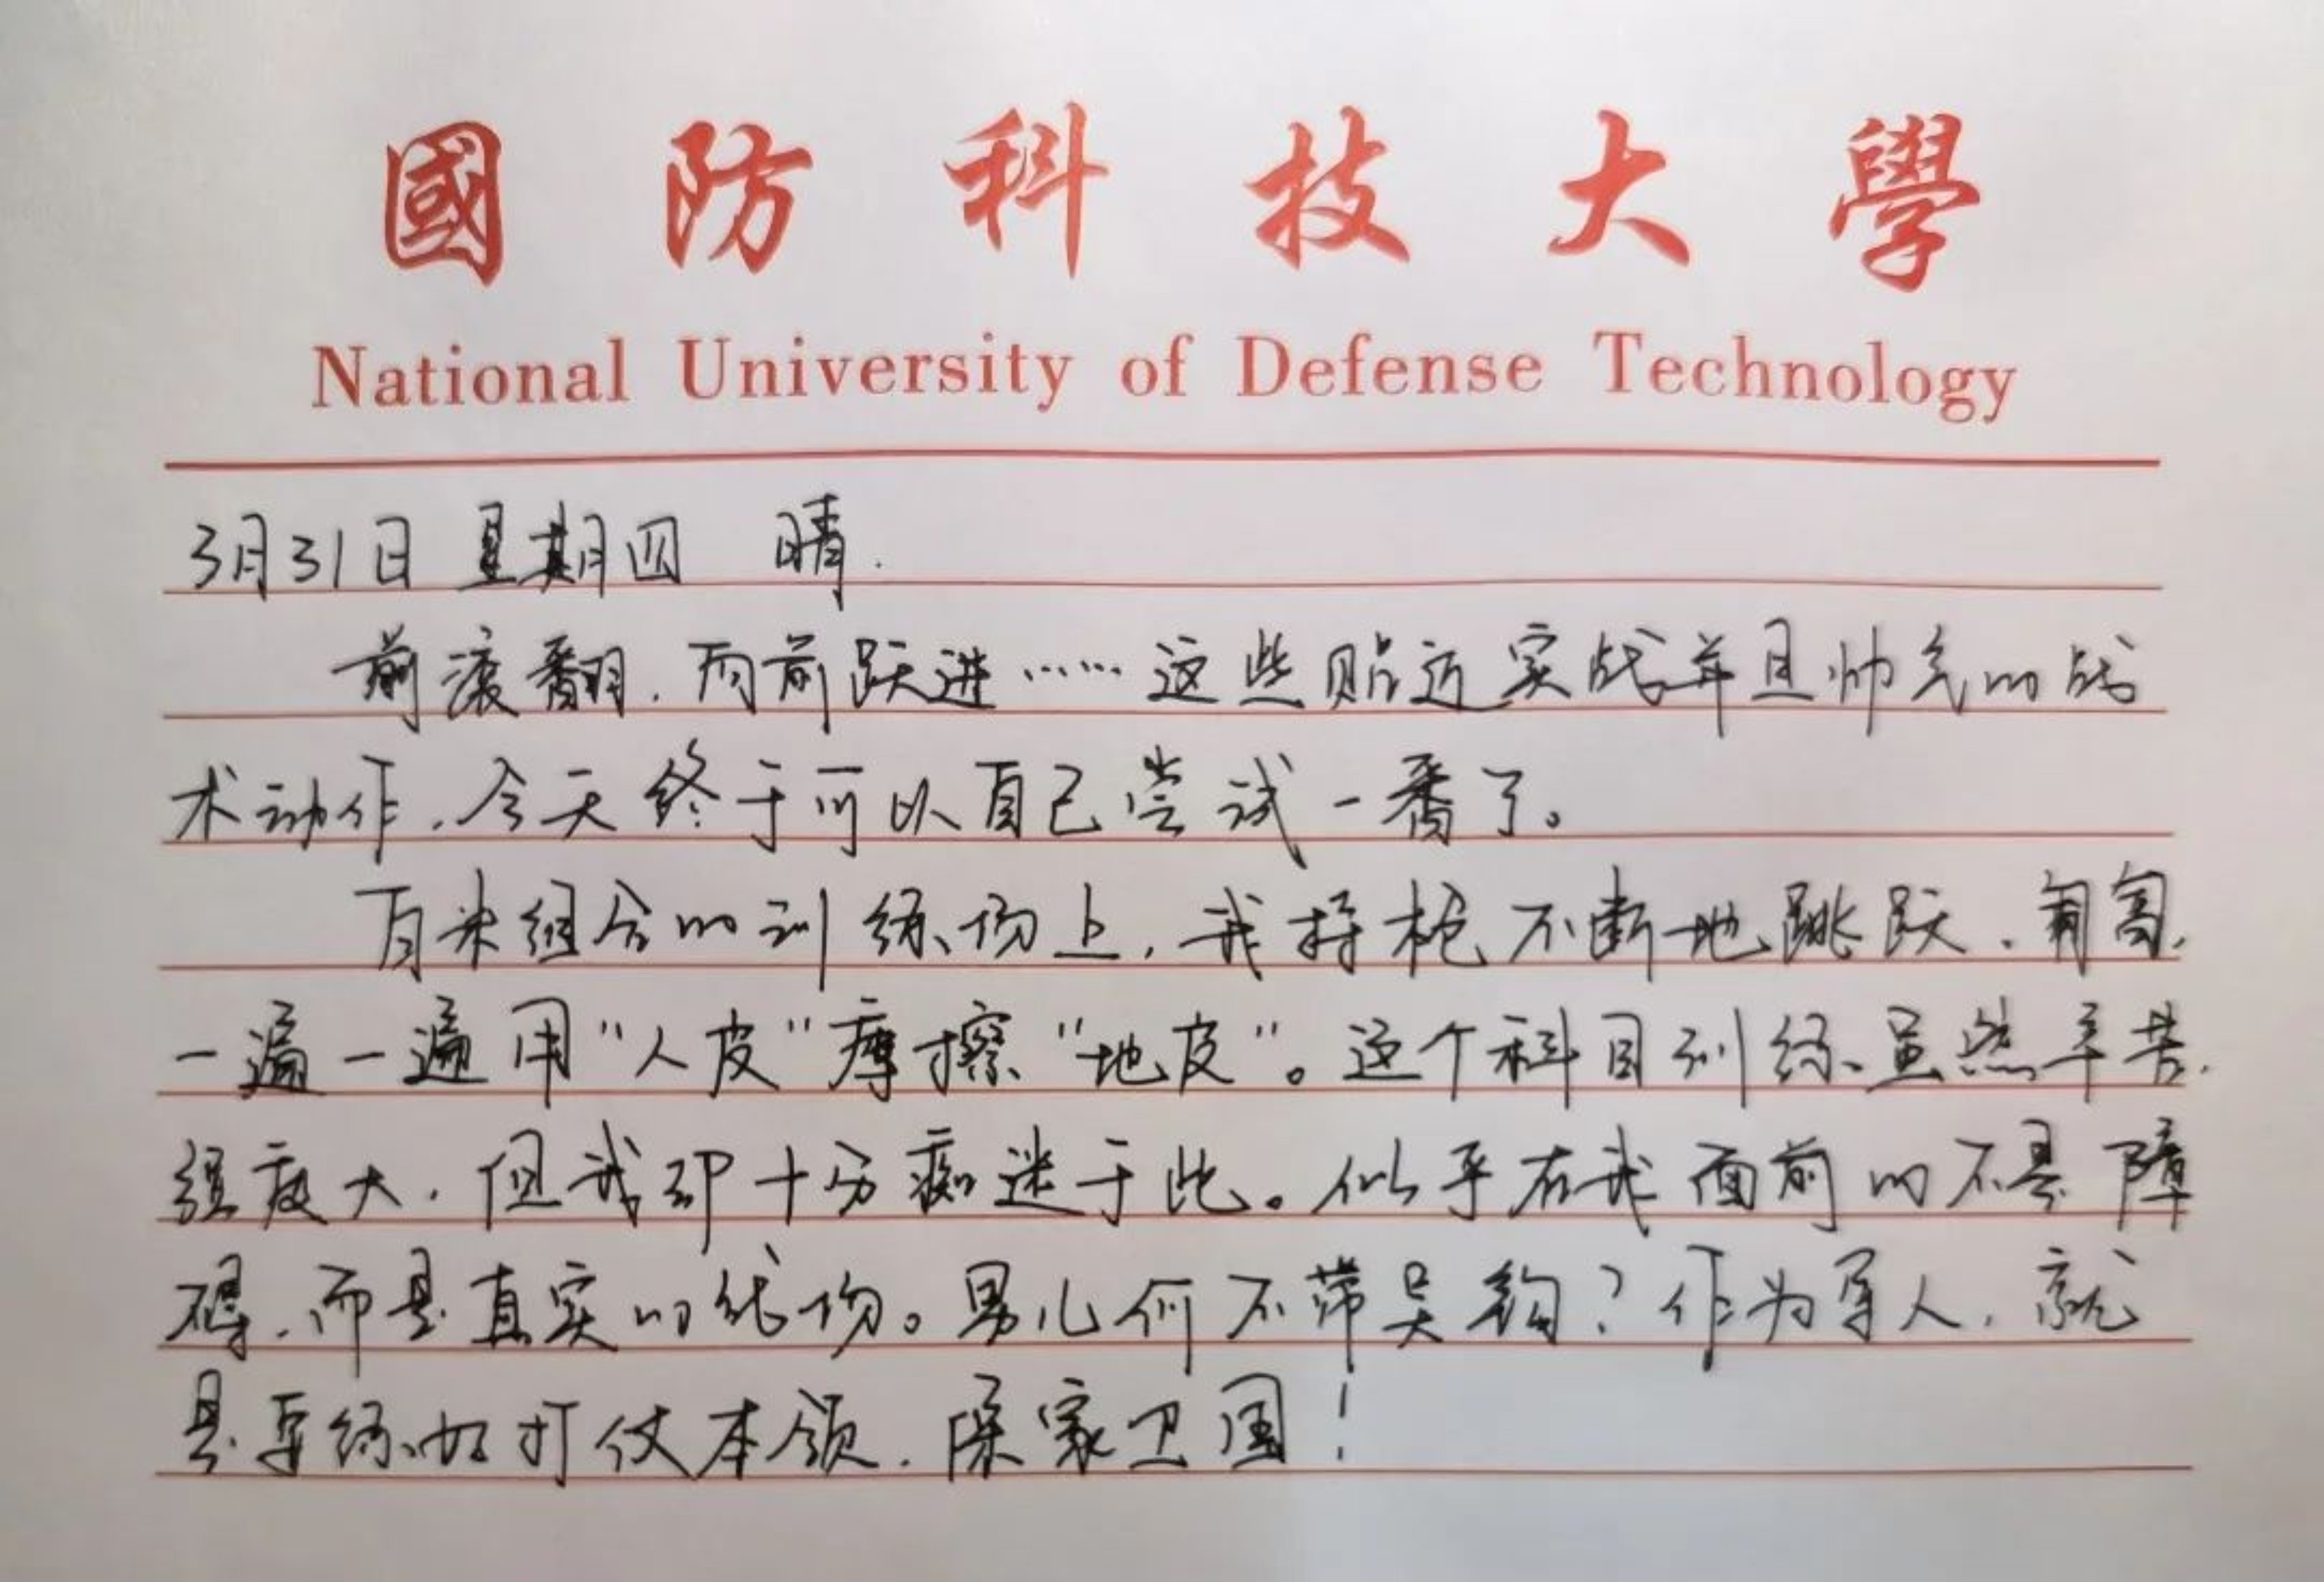 國防科技大學
National University of Defense Technology
3月31日 星期四 晴.
前滚翻，向前跃进……这些贴近实战并且帅气的战
术动作，今天终于可以自己尝试一番了。
百米组合的训练场上，我持枪不断地跳跃、匍匐，
一遍一遍用“人皮”摩擦“地皮”。这个科目训练虽然辛苦，
强度大，但我却十分痴迷于此。似乎在我面前的不是障
碍，而是真实的战场。男儿何不带吴钩？作为军人，就
是要练好打仗本领，保家卫国！